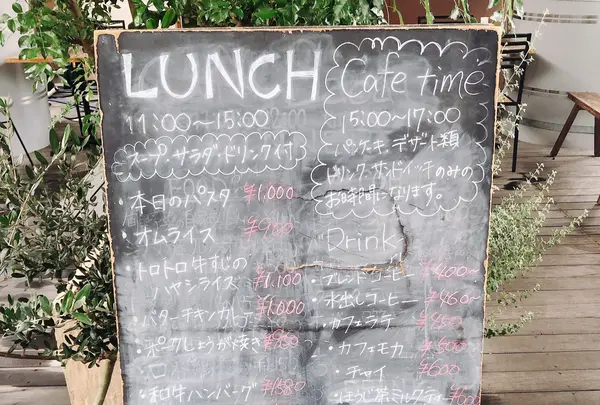 LUNCH
11:00~15:00
スープ・サラダ・ドリンク付
・本日のパスタ ¥1,000
・オムライス ¥900
・トロトロ牛すじの
ハヤシライス ¥1,100
・バターチキンカレー ¥1,000
・ポークしょうが焼き
・和牛ハンバーグ ¥1580
Cafe time
15:00~17:00
パンケーキ・デザート類
ドリンク・サンドイッチのみの
お時間になります。
Drink
・ブレンドコーヒー ¥400~
・水出しコーヒー ¥460~
・カフェラテ
・カフェモカ ¥500
・チャイ
・ほうじ茶ミルクティー